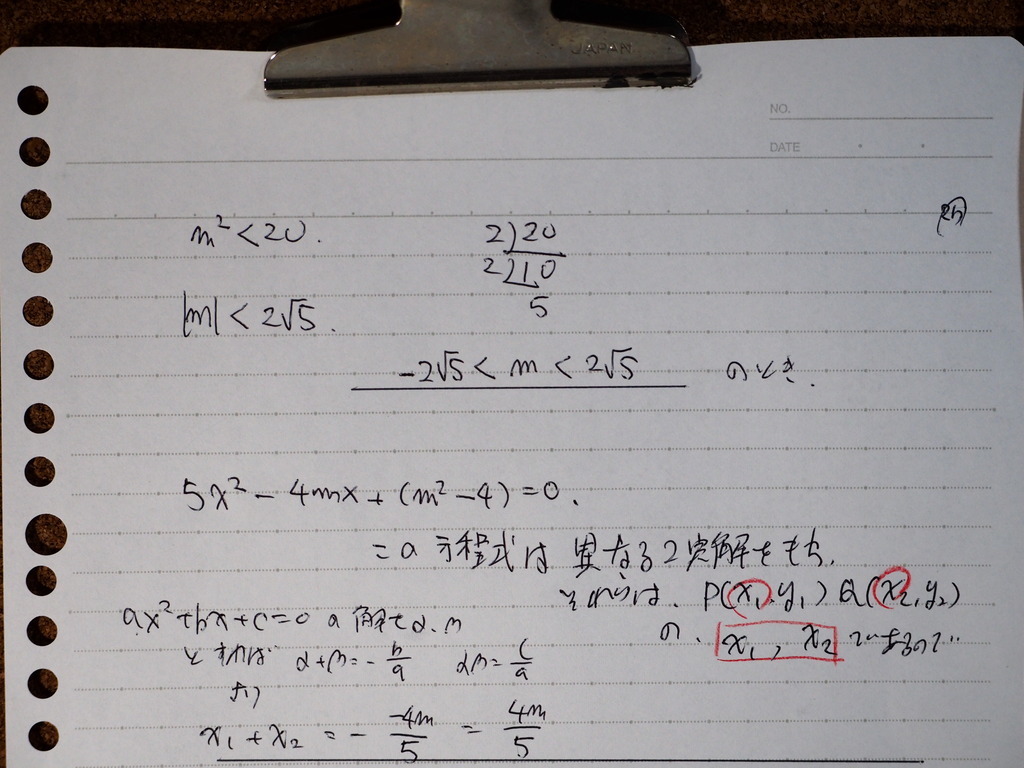 JAPAN
NO.
DATE
m²<20.
2)20
2)10
5
|m|<2√5.
-2√5< m < 2√5 のとき.
5x²-4mx+(m²-4)=0.
この方程式は 異なる2実解をもち,
それらは, P(x₁,y₁) Q(x₂,y₂)
の, x₁, x₂ であるので…
ax²+bx+c=0 の解をα,β
とすれば α+β=-b/a αβ=c/a
より
x₁+x₂ = - -4m/5 = 4m/5